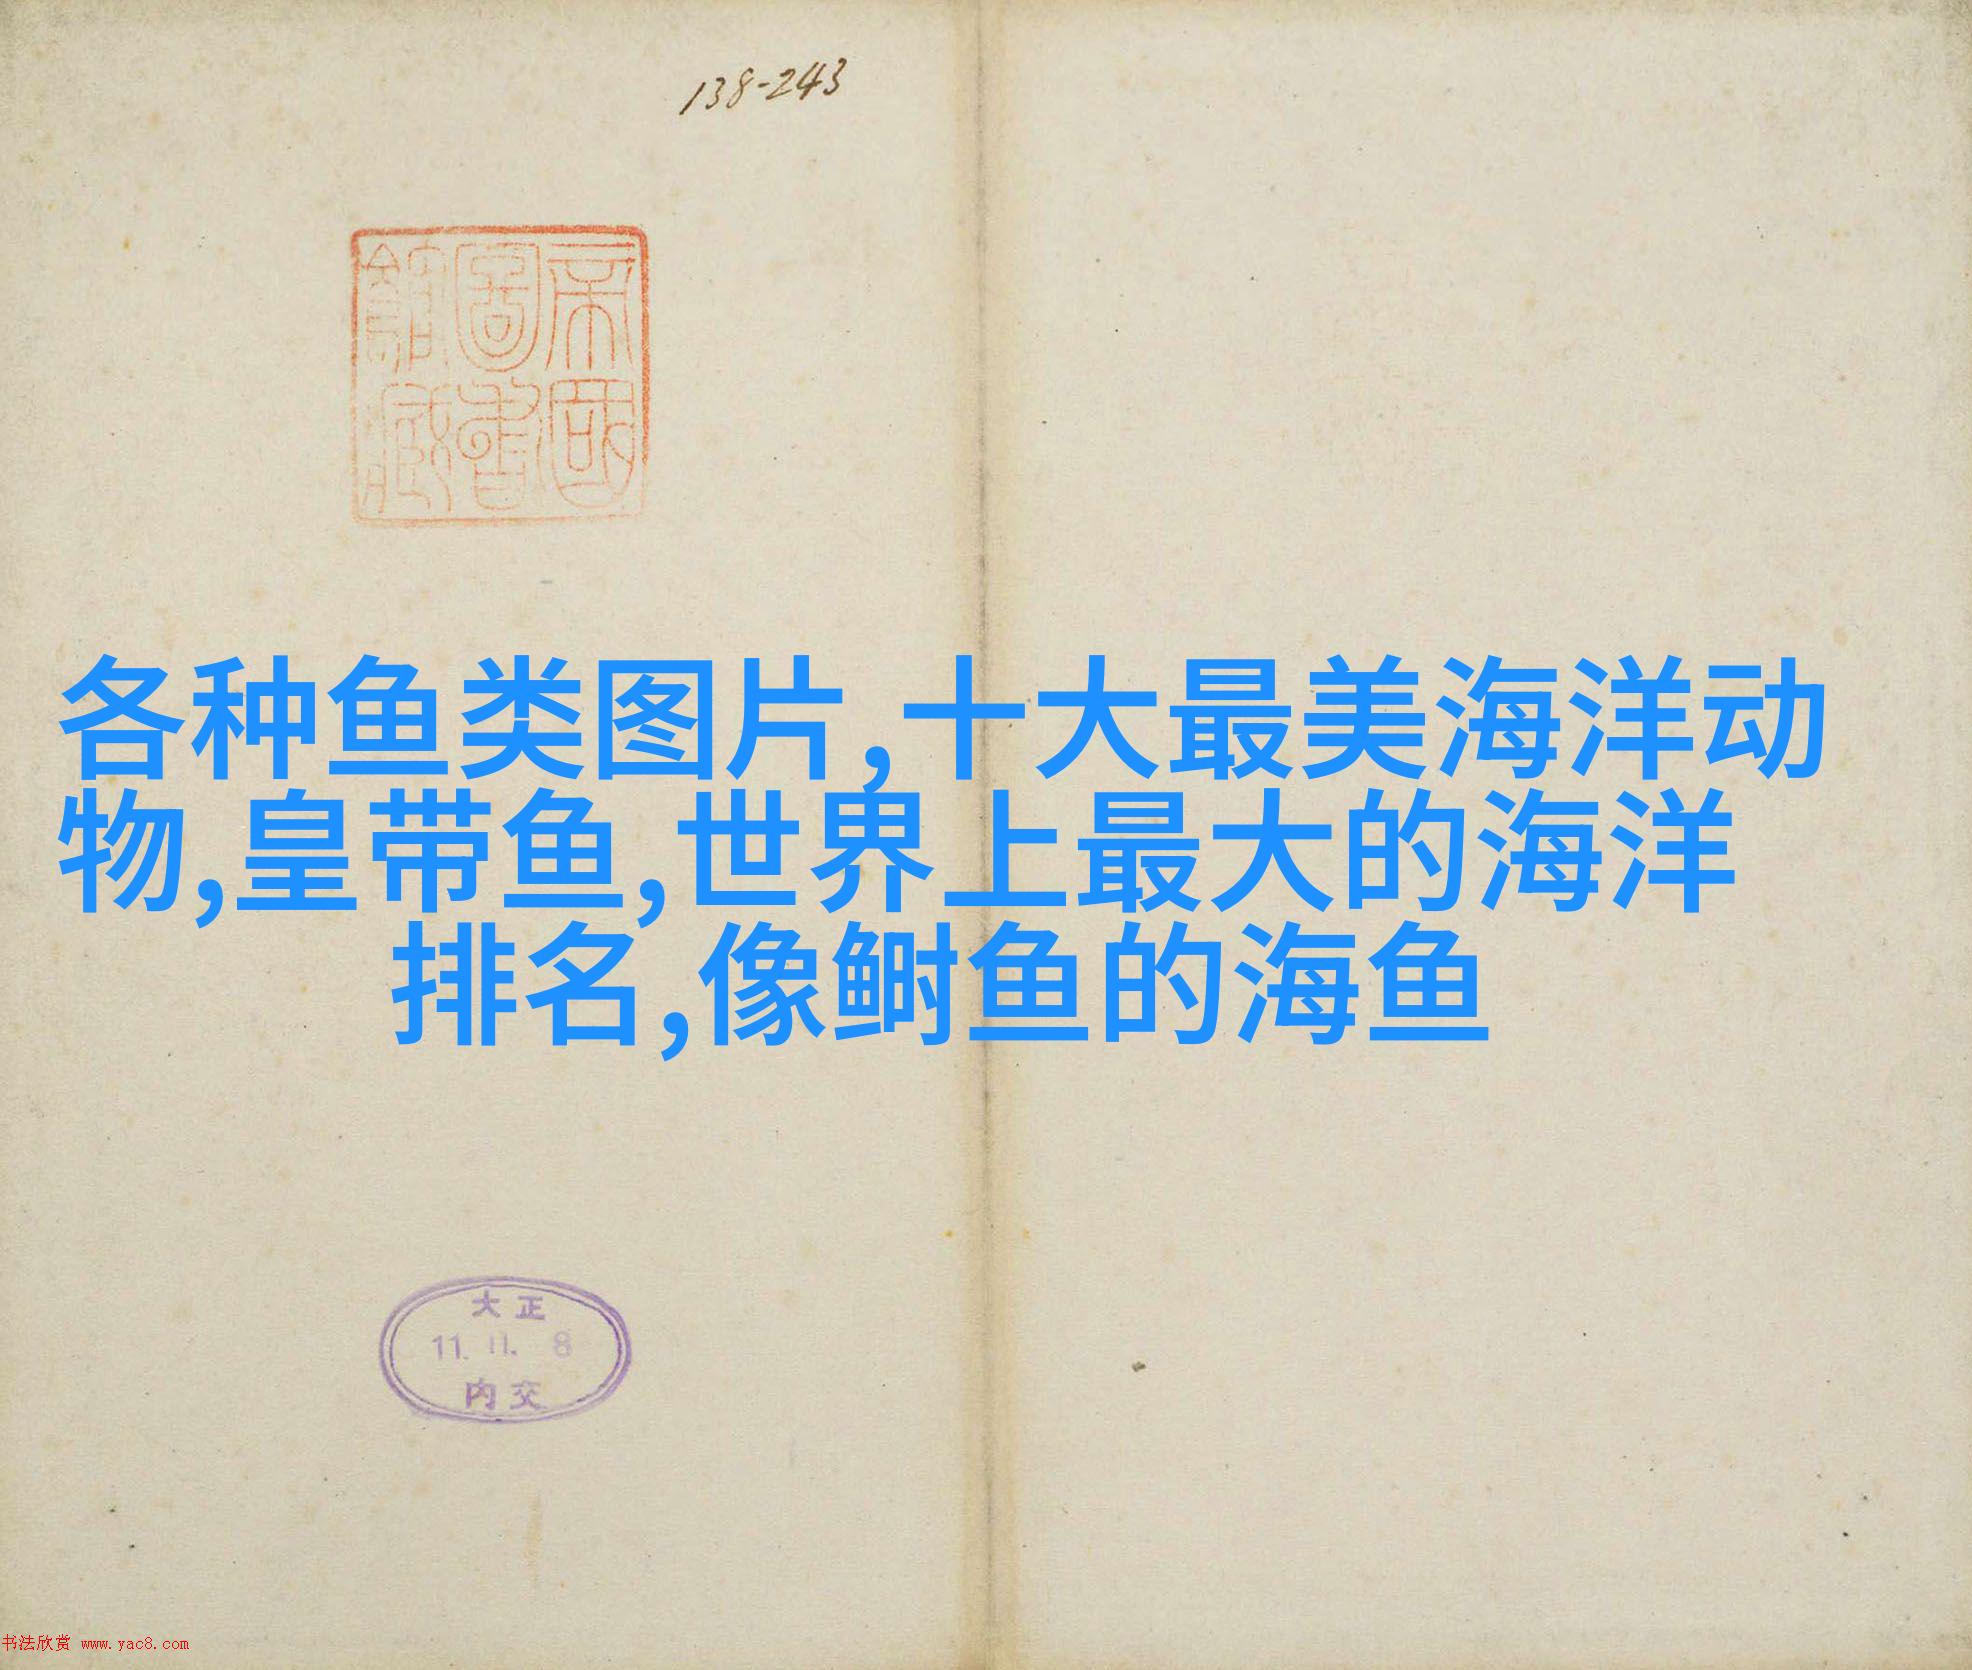 138-243
帝國
圖書
館藏
各种鱼类图片,十大最美海洋动
物,皇带鱼,世界上最大的海洋
排名,像鲥鱼的海鱼
大正
11. 11. 8
内交
书法欣赏 www.yac8.com